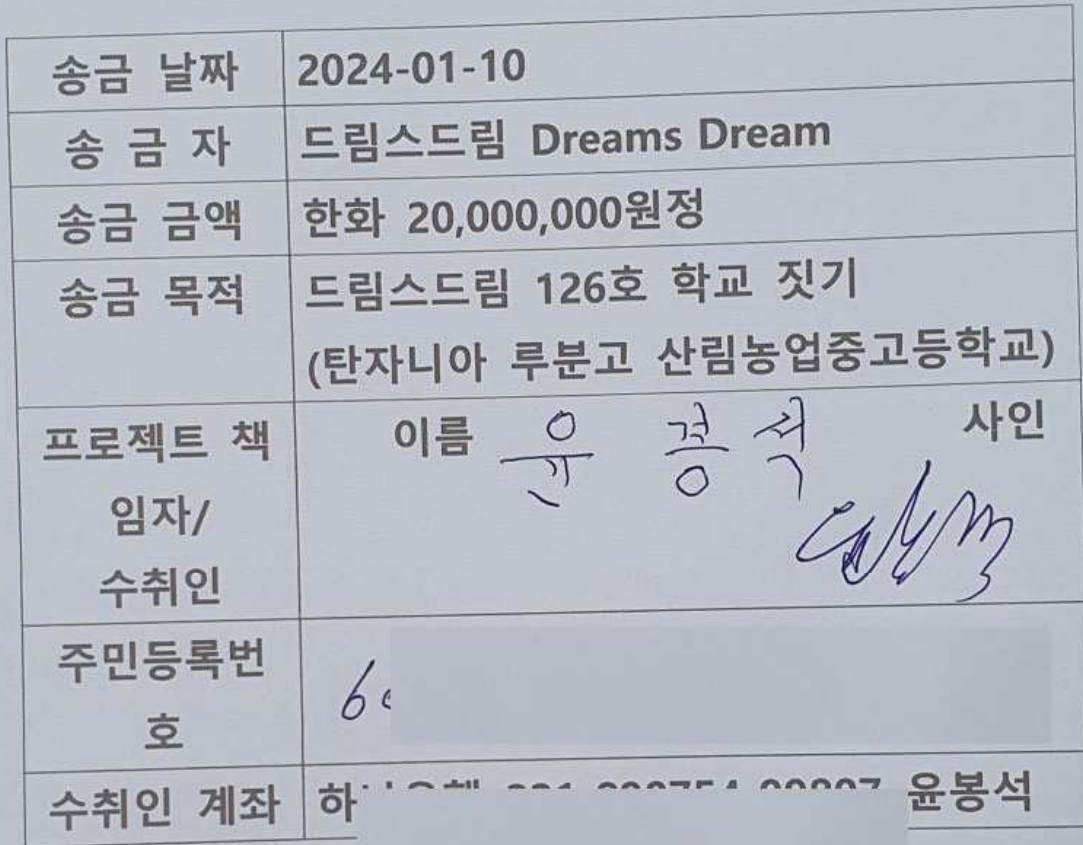 송금 날짜 2024-01-10
송 금 자 드림스드림 Dreams Dream
송금 금액 한화 20,000,000원정
송금 목적 드림스드림 126호 학교 짓기
(탄자니아 루분고 산림농업중고등학교)
프로젝트 책
임자/
수취인
이름 윤 봉 석 사인
주민등록번
호
6
수취인 계좌 하 윤봉석